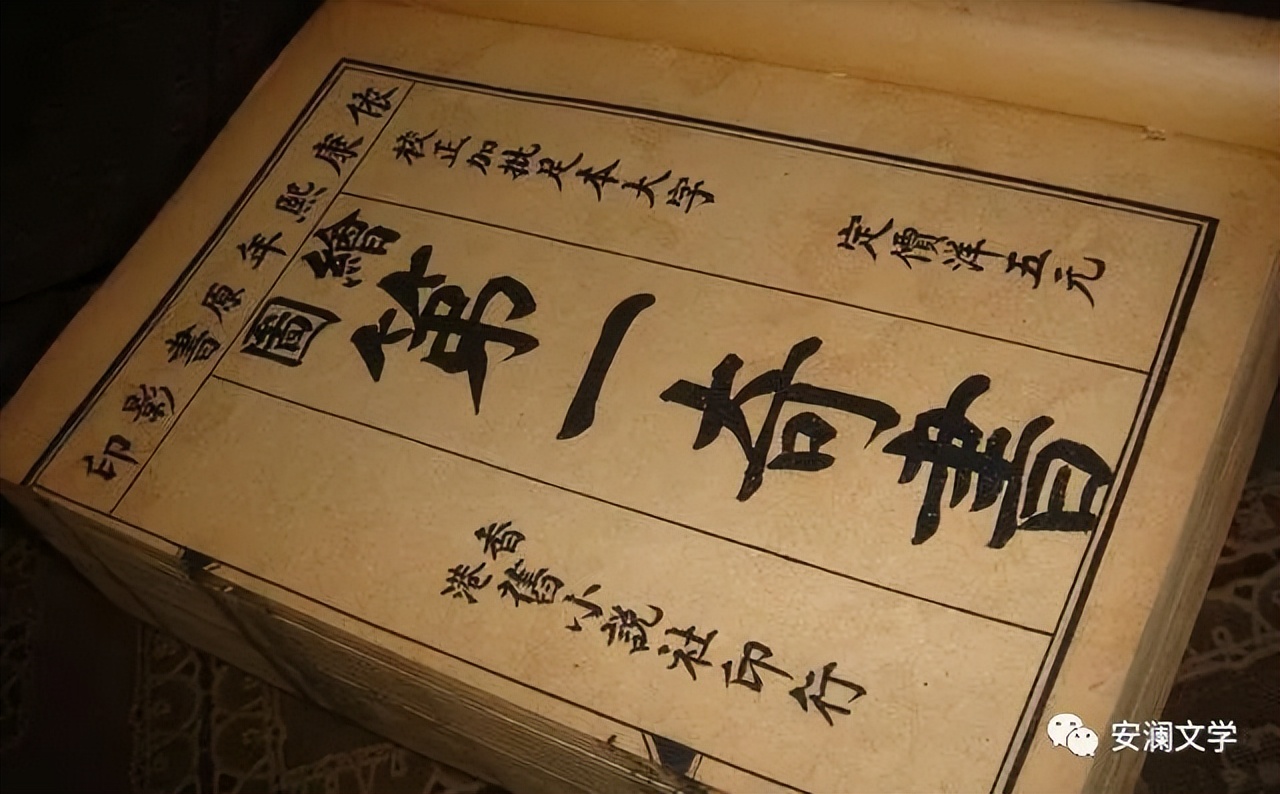 依康熙年原書影印
校正加批足本大字
定價洋五元
繪圖
第一奇書
香港舊小說社印行
安澜文学